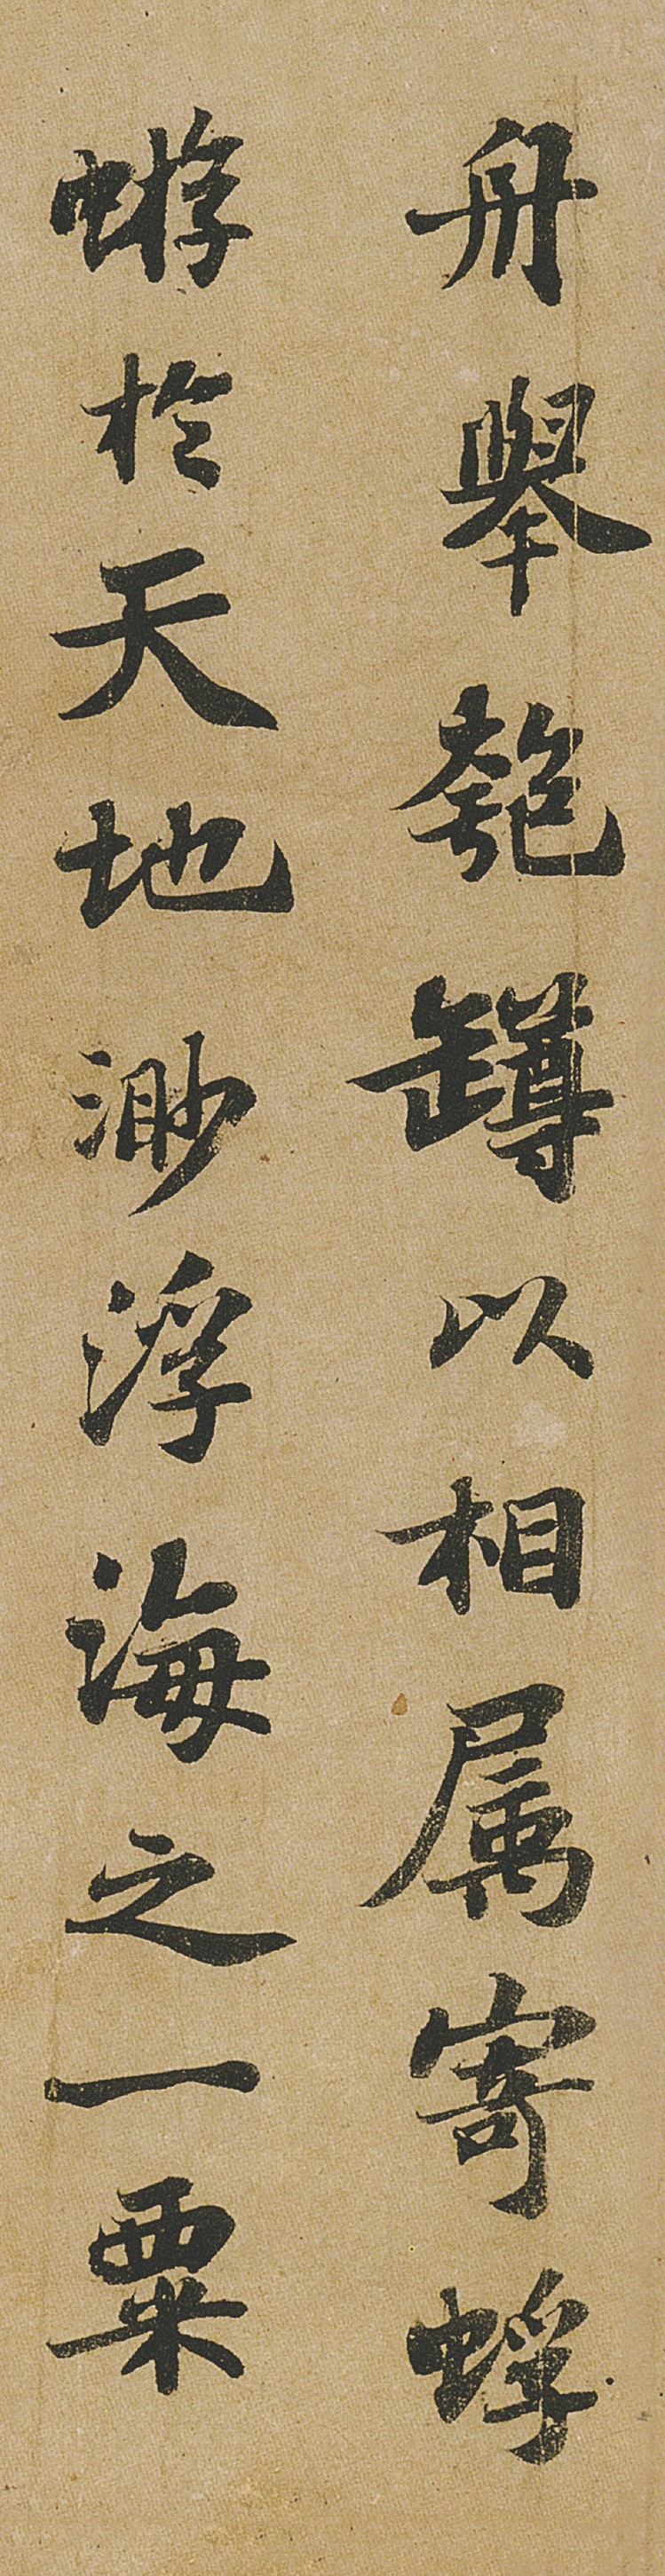 舟舉匏罇以相属寄蜉
蝣於天地渺浮海之一粟